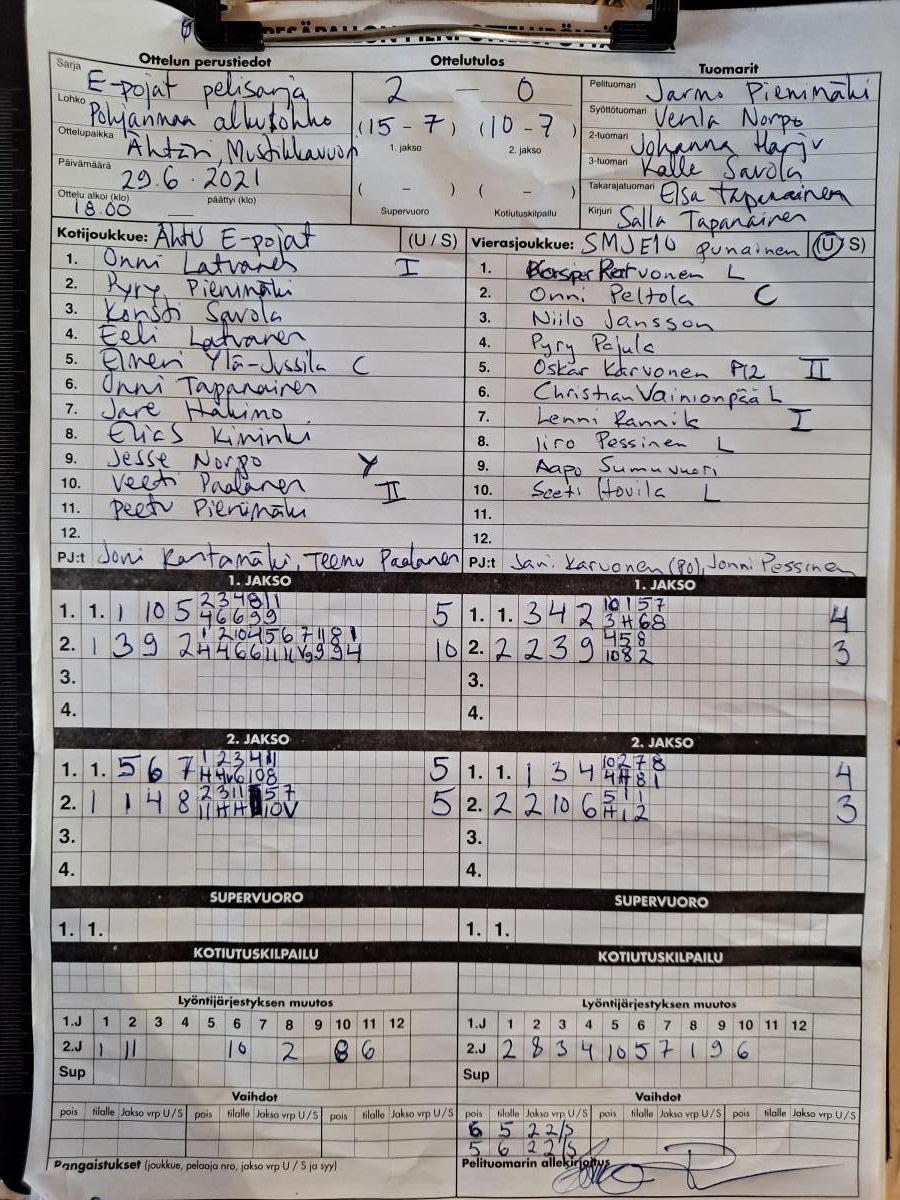 Ottelun perustiedot
Sarja E-pojat pelisarja
Lohko Pohjanmaa alkulohko
Ottelupaikka Ähtäri, Mustikkavuori
Päivämäärä 29.6.2021
Ottelu alkoi (klo) 18.00 päättyi (klo)
Ottelutulos
2 — 0
(15 - 7) (10 - 7)
1. jakso 2. jakso
( - ) ( - )
Supervuoro Kotiutuskilpailu
Tuomarit
Pelituomari Jarmo Pienimäki
Syöttötuomari Venla Norpo
2-tuomari Johanna Harju
3-tuomari Kalle Savola
Takarajatuomari Elsa Tapanainen
Kirjuri Salla Tapanainen
Kotijoukkue: ÄhtU E-pojat (U / S)
1. Onni Latvanen I
2. Pyry Pienimäki
3. Konsti Savola
4. Eeli Latvanen
5. Elmeri Ylä-Jussila C
6. Onni Tapanainen
7. Jare Hakimo
8. Elias Kininki
9. Jesse Norpo Y
10. Veeti Paalanen II
11. Peetu Pienimäki
12.
PJ:t Joni Rantamäki, Teemu Paalanen
Vierasjoukkue: SMJE10 punainen (U / S)
1. Karvonen L
2. Onni Peltola C
3. Niilo Jansson
4. Pyry Pajula
5. Oskar Karvonen P12 II
6. Christian Vainionpää L
7. Lenni Rannik I
8. Iiro Pessinen L
9. Aapo Sumuvuori
10. Seeti Hovila L
11.
12.
PJ:t Jani Karvonen (PO), Jonni Pessinen
1. JAKSO
1. 1. 1 10 5 2 3 4 8 11 5
4 6 6 9 9
2. 1 3 9 2 10
3.
4.
1. JAKSO
1. 1. 3 4 2 10 1 5 7 4
3 H 6 8
2. 2 2 3 9 4 5 8 3
10 8 2
3.
4.
2. JAKSO
1. 1. 5 6 7 1 2 3 4 11 5
H 4 V6 10 8
2. 1 1 4 8 2 3 11 5 7 5
11 H H 10 V
3.
4.
2. JAKSO
1. 1. 1 3 4 10 2 7 8 4
4 H 8 1
2. 2 2 10 6 5 1 1 3
H 1 2
3.
4.
SUPERVUORO
1. 1.
SUPERVUORO
1. 1.
KOTIUTUSKILPAILU
KOTIUTUSKILPAILU
Lyöntijärjestyksen muutos
1.J 1 2 3 4 5 6 7 8 9 10 11 12
2.J 1 11 10 2 8 6
Sup
Lyöntijärjestyksen muutos
1.J 1 2 3 4 5 6 7 8 9 10 11 12
2.J 2 8 3 4 10 5 7 1 9 6
Sup
Vaihdot
pois tilalle Jakso vrp U / S pois tilalle Jakso vrp U / S pois tilalle Jakso vrp U / S
Vaihdot
pois tilalle Jakso vrp U / S pois tilalle Jakso vrp U / S pois tilalle Jakso vrp U / S
6 5 2 2/S
5 6 2 2/S
Rangaistukset (joukkue, pelaaja nro, jakso vrp U / S ja syy)
Pelituomarin allekirjoitus